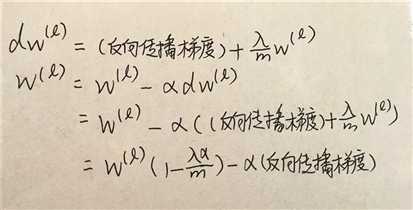 dw⁽ˡ⁾ = (反向传播梯度) + λ/m w⁽ˡ⁾
w⁽ˡ⁾ = w⁽ˡ⁾ - αdw⁽ˡ⁾
= w⁽ˡ⁾ - α((反向传播梯度) + λ/m w⁽ˡ⁾)
= w⁽ˡ⁾(1 - λα/m) - α(反向传播梯度)